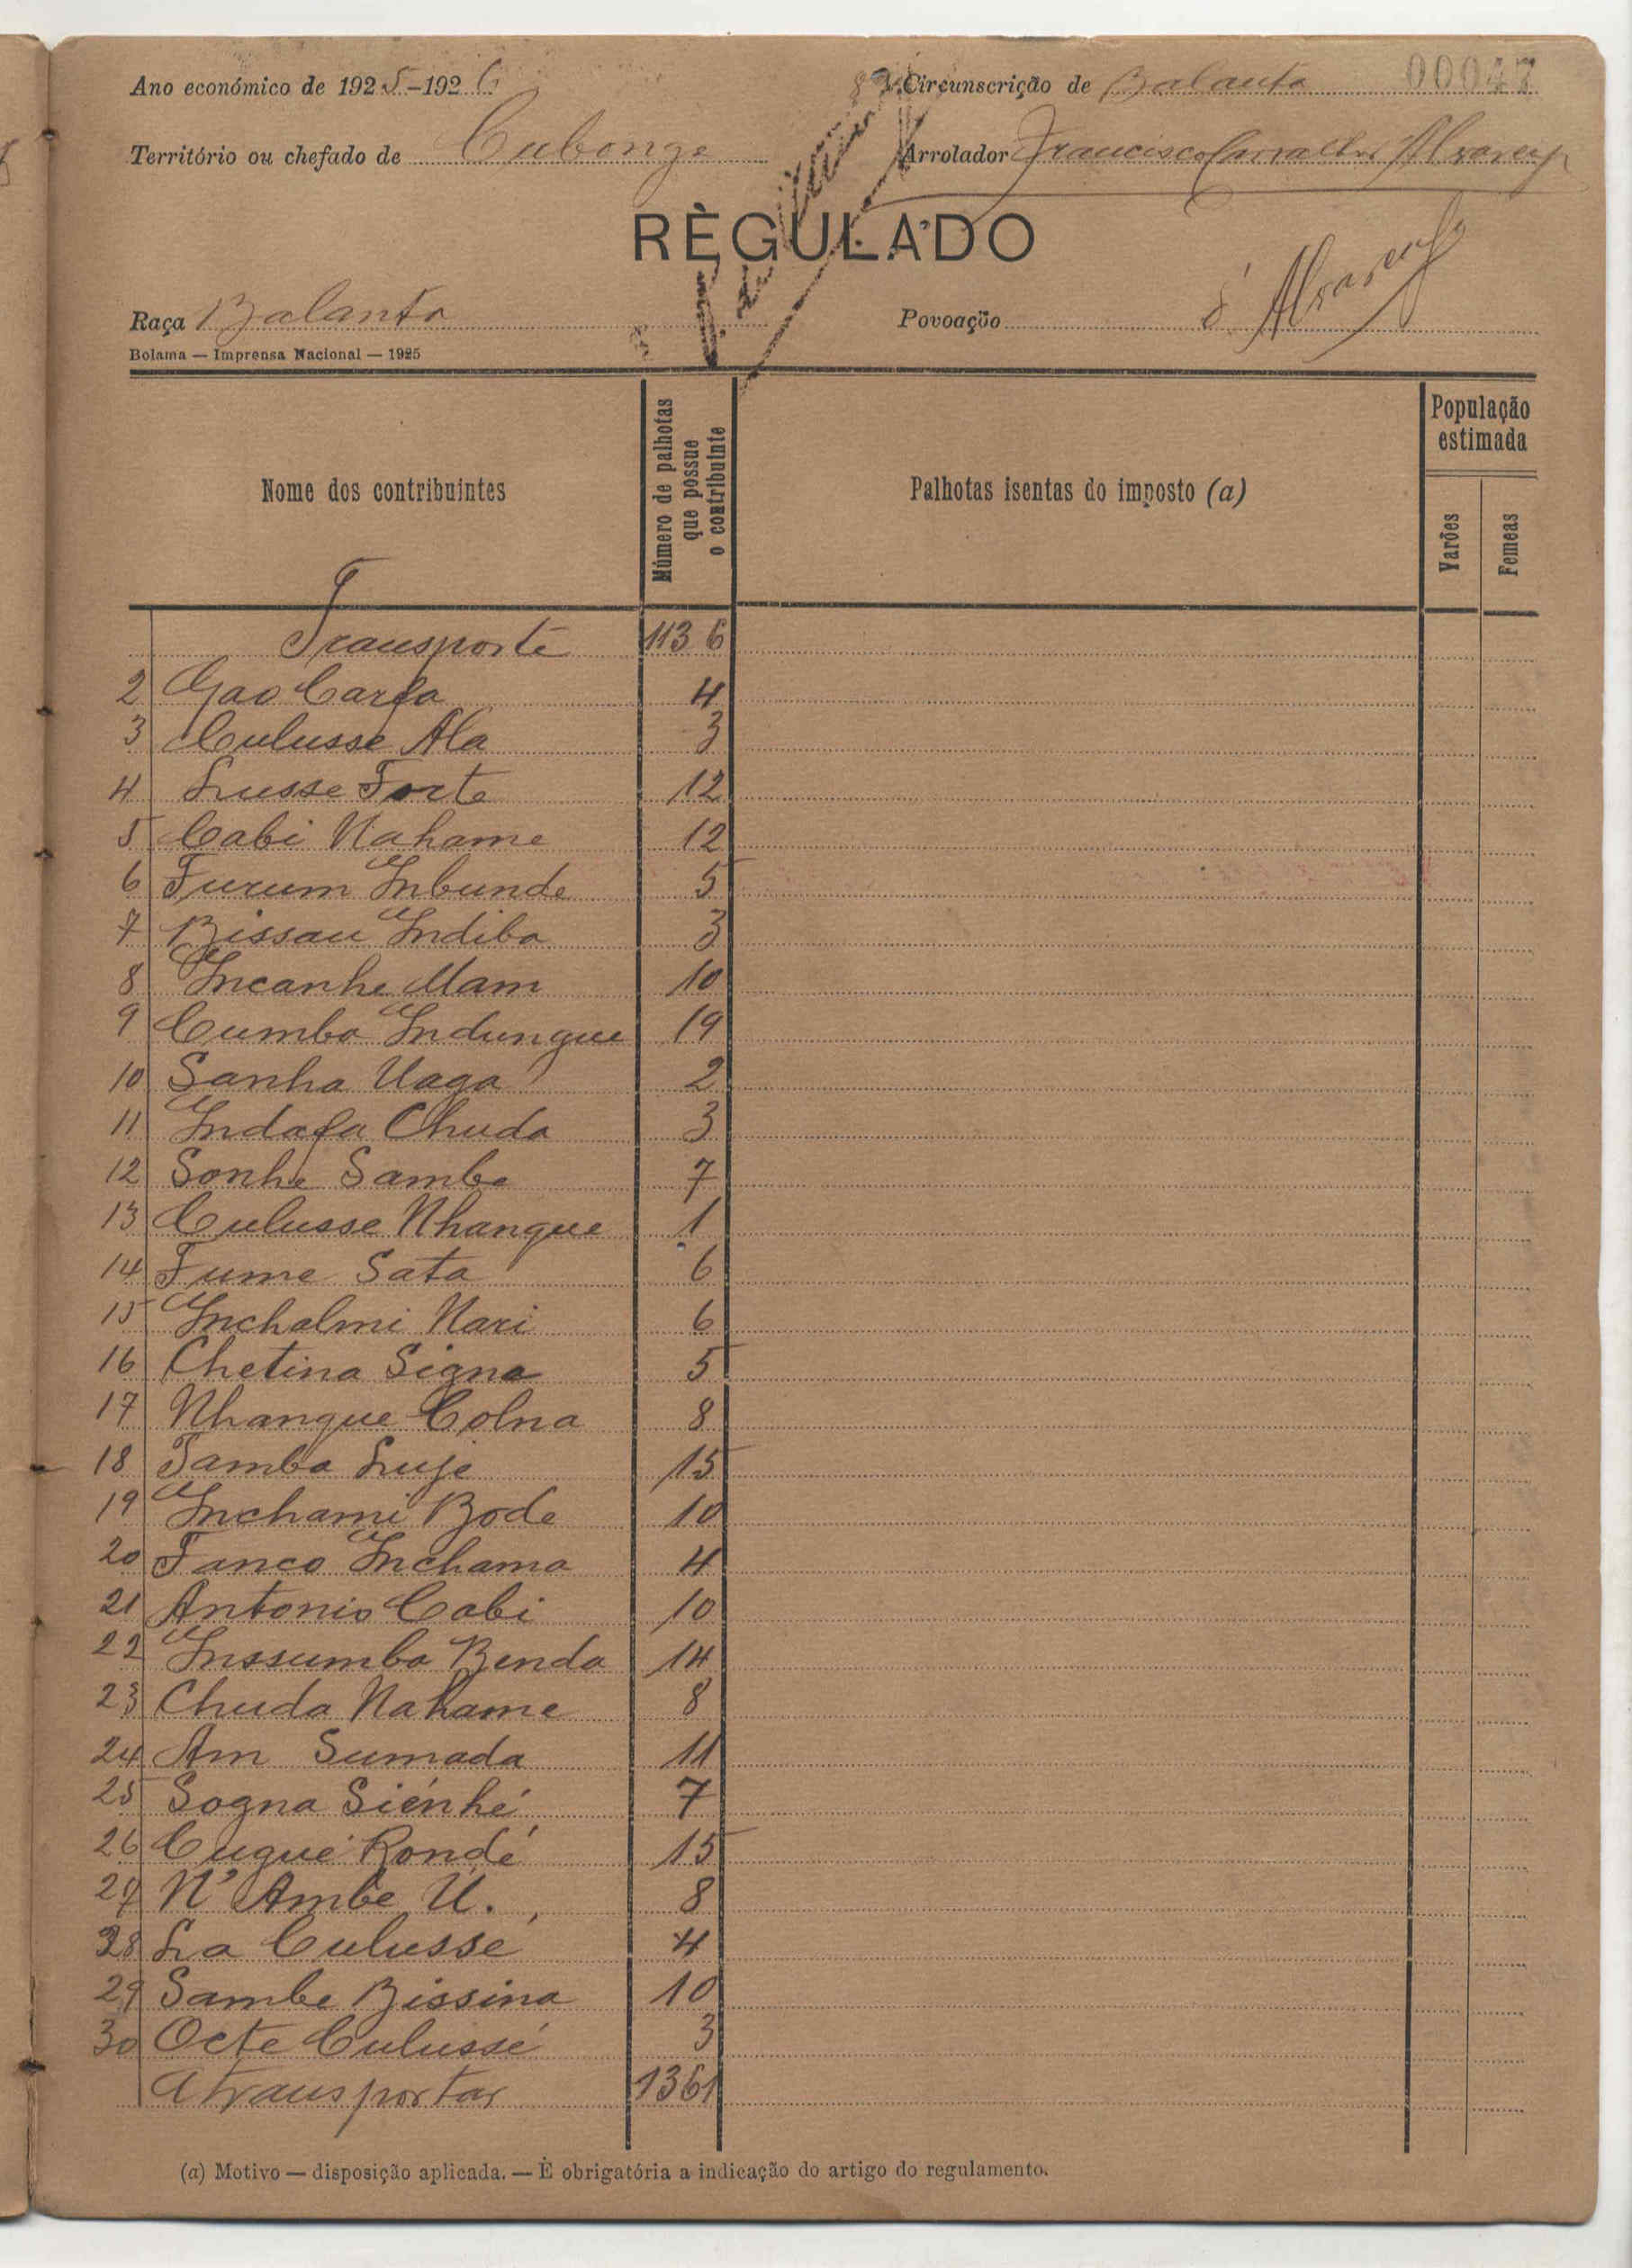 00047
Ano económico de 1925-1926 Circunscrição de Balanta
Território ou chefado de Cubonge Arrolador Francisco Carvalho Alvarenga
RÈGULADO
Raça Balanta Povoação d'Alvarenga
Bolama — Imprensa Nacional — 1925
Nome dos contribuintes
Número de palhotas que possue o contribuinte
Palhotas isentas do imposto (a)
População estimada
Varões
Femeas
Transporte 1136
2 Gao Carfa 4
3 Culusse Ala 3
4 Lusse Forte 12
5 Cabi Nahame 12
6 Furum Inbunde 5
7 Bissau Indiba 3
8 Incanhe Mam 10
9 Cumba Indungue 19
10 Sanha Uaga 2
11 Indafa Chuda 3
12 Sonhe Sambe 7
13 Culusse Nhangue 1
14 Fume Sata 6
15 Inchalmi Nari 6
16 Chetina Signa 5
17 Nhangue Colna 8
18 Tamba Luje 15
19 Inchami Bode 10
20 Fanco Inchama 4
21 Antonio Cabi 10
22 Inssumba Benda 14
23 Chuda Nahame 8
24 Am Sumada 11
25 Sogna Siénhé 7
26 Cugué Rondé 15
27 N'Ambe U. 8
28 La Culussé 4
29 Sambe Bissina 10
30 Octe Culussé 3
A transportar 1361
(a) Motivo — disposição aplicada. — É obrigatória a indicação do artigo do regulamento.